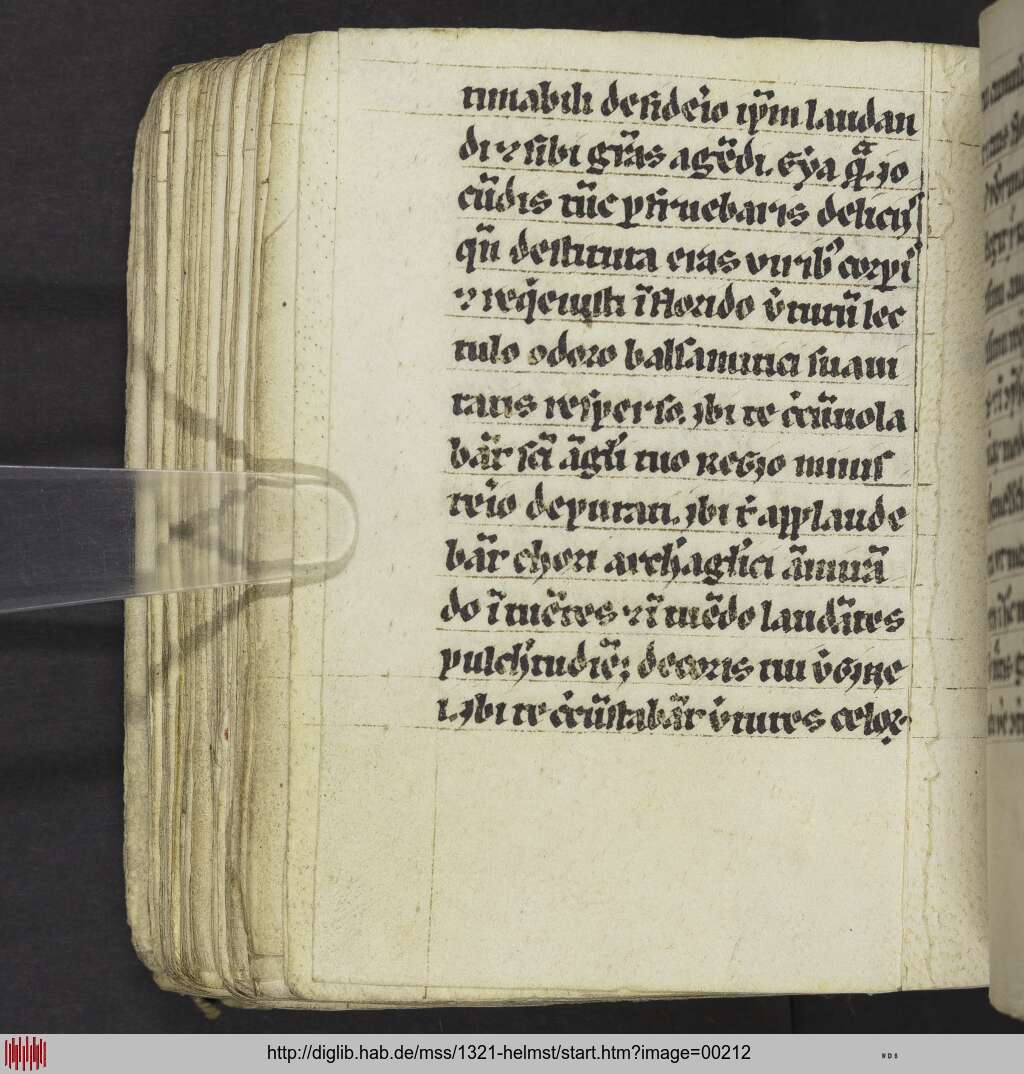 timabili desideˀio ip̄m laudan
di ⁊ sibi gr̄as agēdi. Eẏa qᵃ̄. io
cūdis tūc pfruebaris delicijˢ
qn̄ destituta eras virib᾽ corpi᾽
⁊ reqͥeuisti ī florido v̾tutū lec
tulo odoro balsamitici suaui
tatis resperso. vbi te c̾cūuola
bār sc̄i āgl̾i tuo regio minis
teˀio deputati. vbi t̾ applaude
bār chori arch̾agl̾ici āmirā
do ītuētes ⁊ ītuēdo laudātes
pulch̾tudīē; decoris tui v̾gĩe
i. vbi te c̾cūstabār v̾tutes celoꝝ
http://diglib.hab.de/mss/1321-helmst/start.htm?image=00212